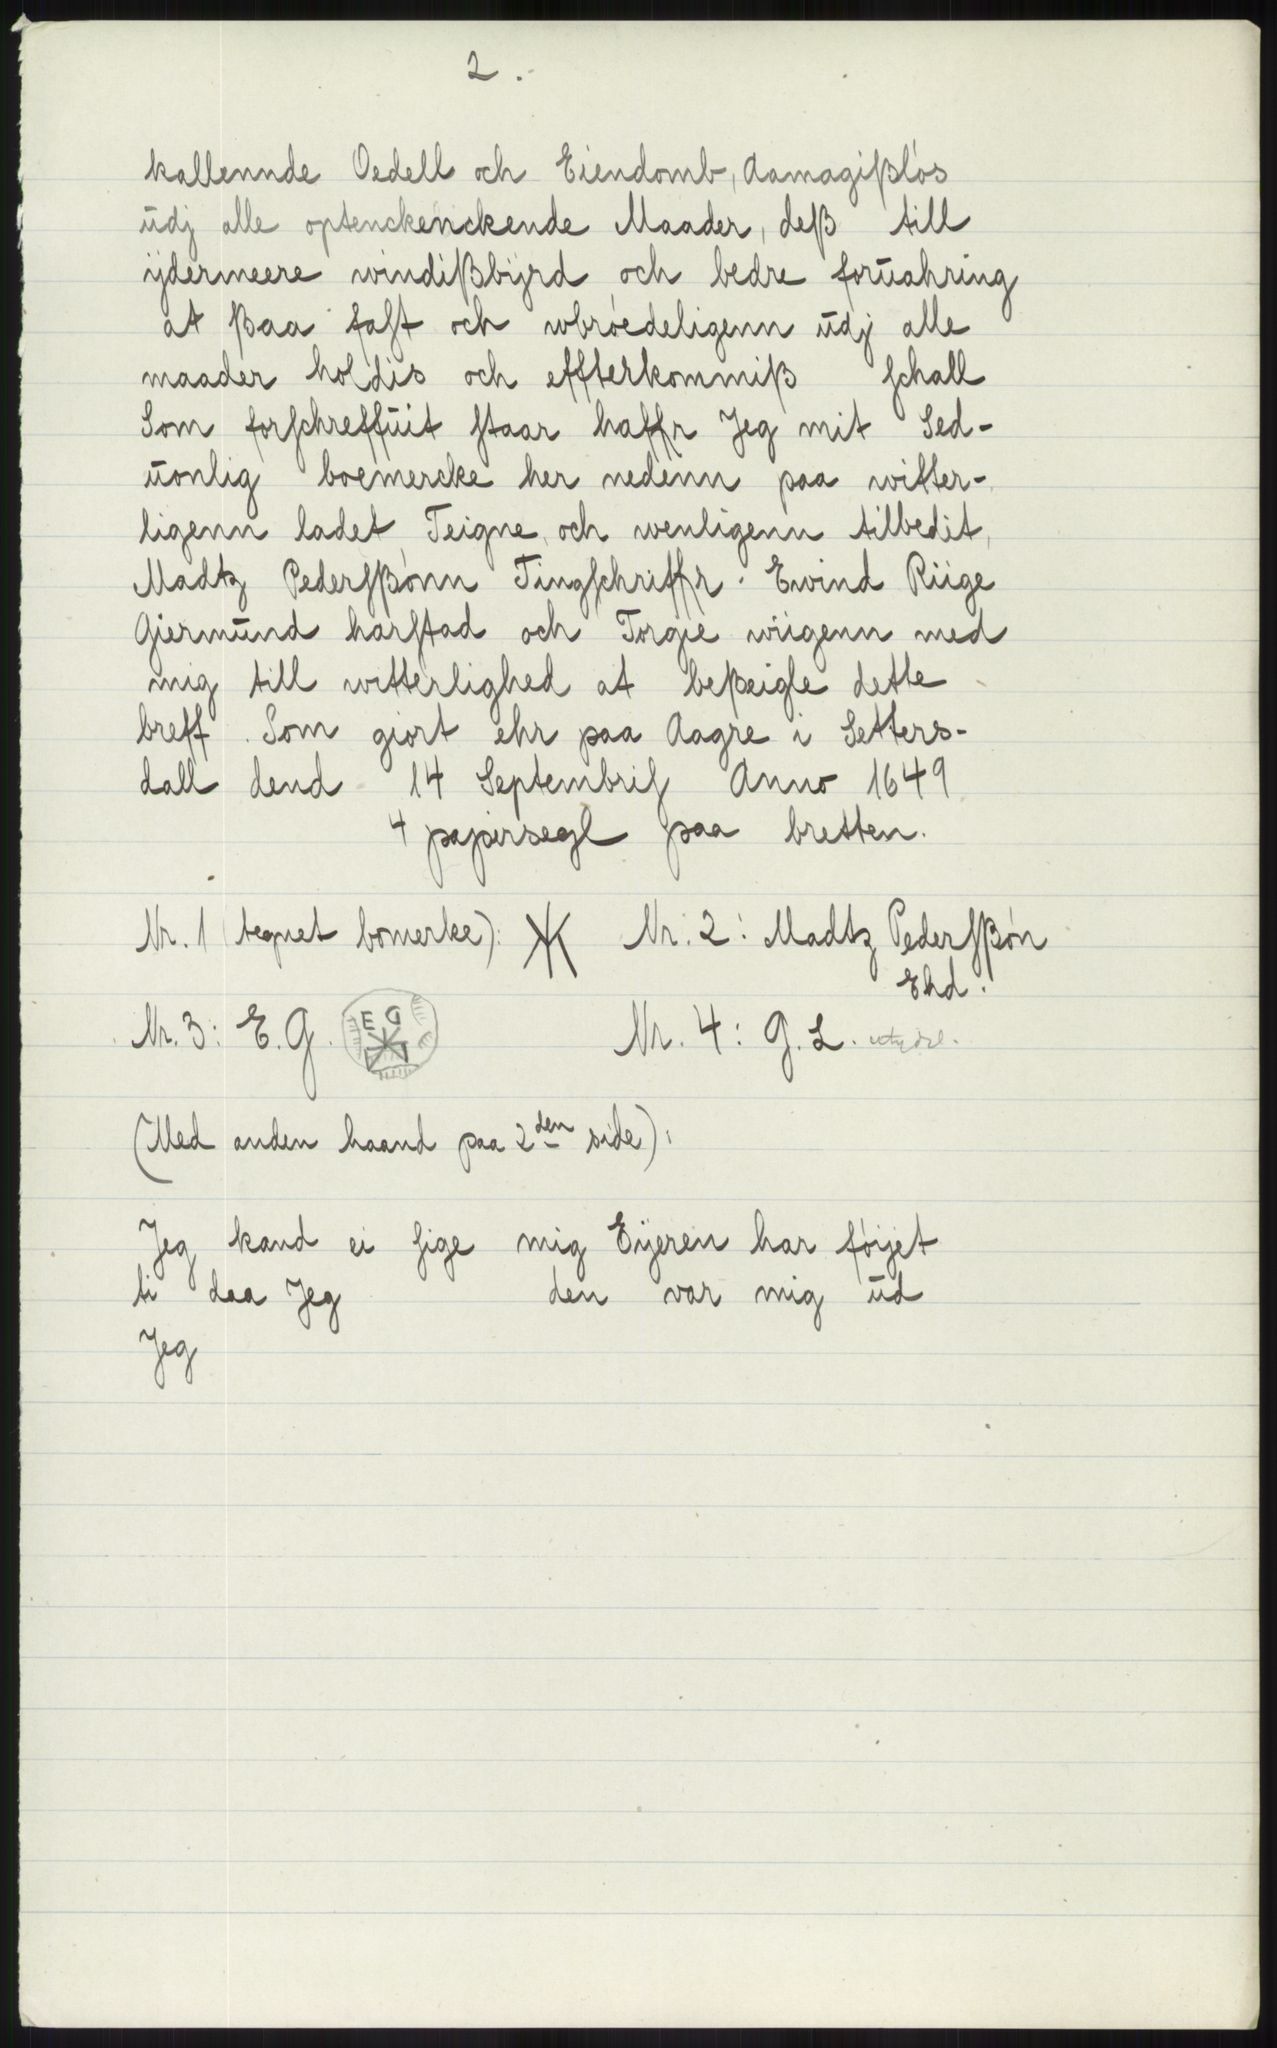 2.
kallennde Oedell och Eiendomb, Aamagißløs
udj alle optenckenckende Maader, deß till
ÿdermeere windißbÿrd och bedre foruahring
at ßaa fast och wbrøedeligenn udj alle
maader holdis och effterkommiß schall
Som forschreffuit staar haffr Jeg mit Sed-
uonlig boemercke her nedenn paa witter-
ligenn ladet Teigne, och wenligenn tilbedit,
Madtz Pederssßønn Tingschriffr. Ewind Riige
Giermund harstad och Torgie wiigenn med
mig till witterlighed at beßeigle dette
breff. Som giort ehr paa Aagre i Setters-
dall dend 14 Septembris Anno 1649
4 papirsegl paa bretten.
Nr. 1 (tegnet bomerke): Nr. 2: Madtz Pedersßøn
Ehd.
Nr. 3: E. G. E G Nr. 4: G. L. utydel.
(Med anden haand paa 2den side):
Jeg kand ei sige mig Eÿeren har føÿet
ti daa Jeg den var mig ud
Jeg